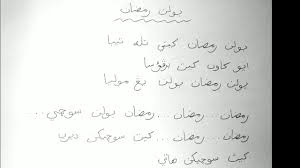 بولن رمضان
بولن رمضان كيني تله تيبا
ايو كاون كيت برڤواسا
بولن رمضان بولن يڠ موليا
رمضان... رمضان... رمضان بولن سوچي...
رمضان... رمضان... كيت سوچيكن ديري
كيت سوچيكن هاتي